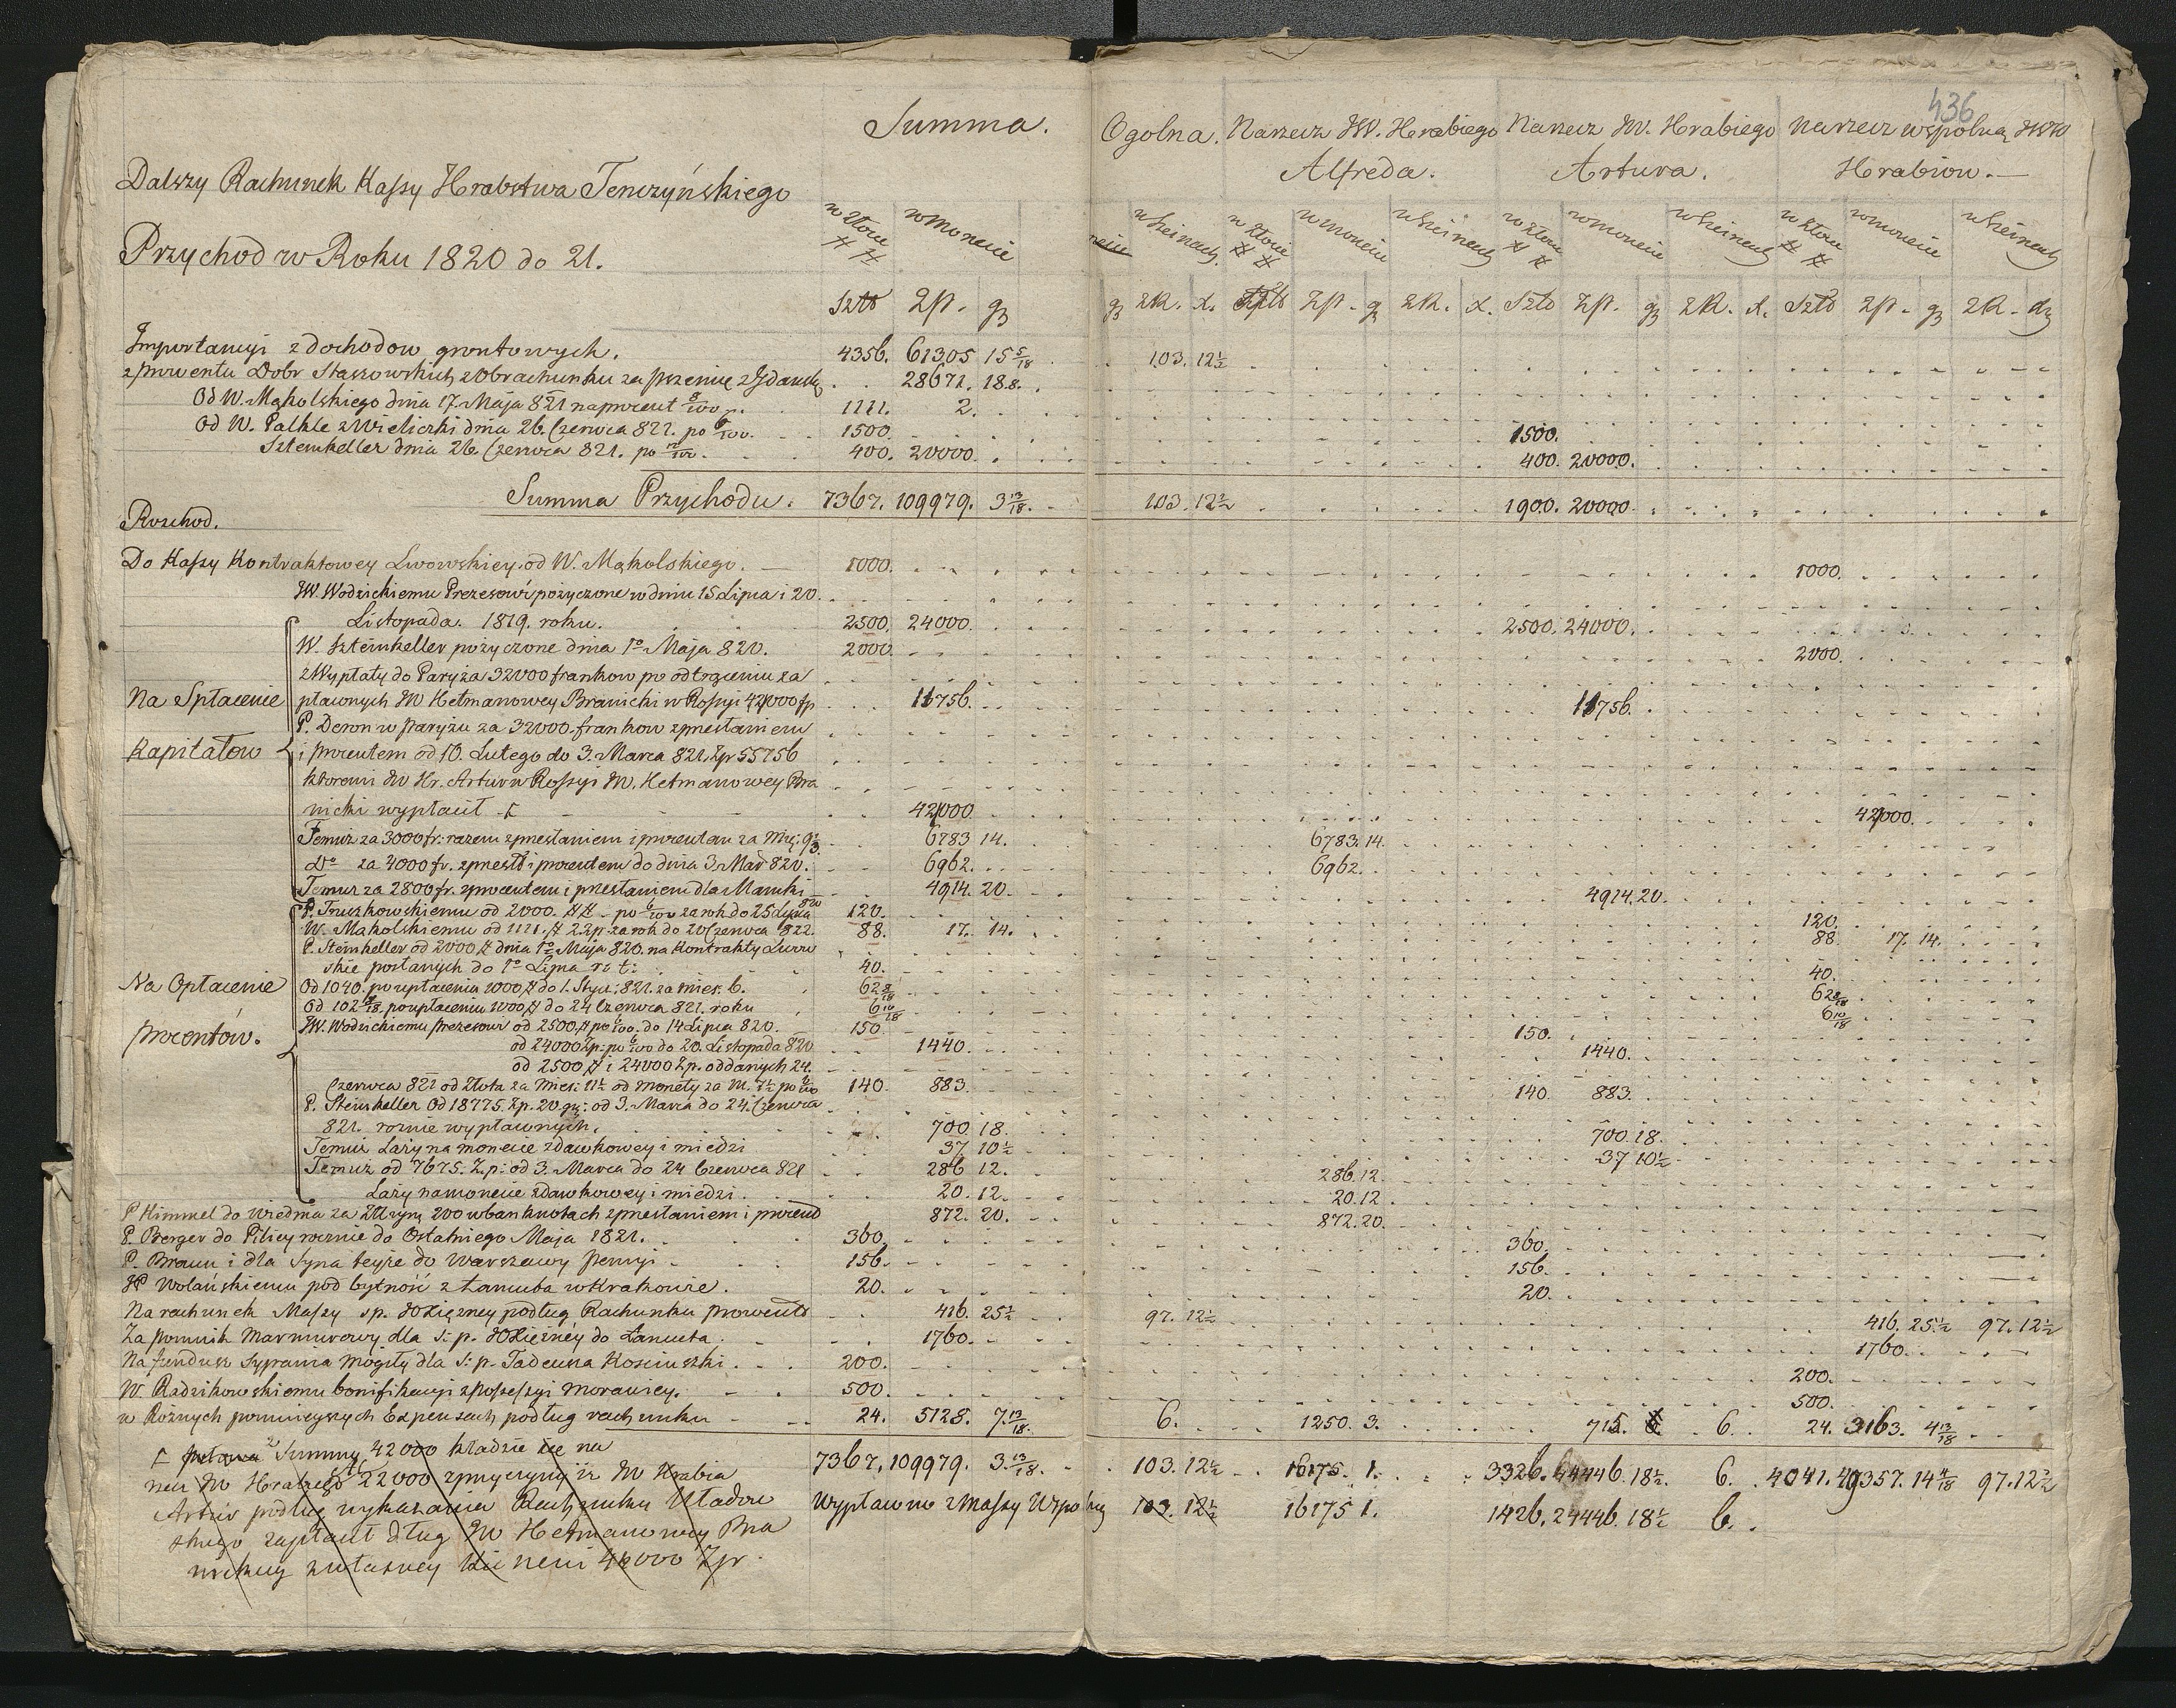 436
Summa. Ogolna. Narzecz JW. Hrabiego Narzecz JW. Hrabiego Narzecz wspolną JWW
Alfreda. Artura. Hrabiow. —
Dalszy Rachunek Kassy Hrabstwa Tenczyńskiego
Przychod w Roku 1820 do 21.
w złocie w Monecie w Szeinach w złocie w Monecie w Szeinach w złocie w Monecie w Szeinach w złocie w Monecie w Szeinach
Sztt Zp. g g ZR. x. Sztt Zp. g ZR. x. Szto Zp. g ZR. x. Szto Zp. g ZR. x
Importancyi z dochodow grontowych. 4356. 61305 15 5/18 103. 12½
z prowentu Dobr Staszowskich z Obrachunku za pszenicę z Gdańska 28672. 18.8.
Od W. Mąkolskiego dnia 17. Maja 821 na procent 8/100 1111. 2.
Od W. Palkle z Wieliczki dnia 26. Czerwca 821. po 6/100. 1500. 1500.
Szteinkeller dnia 26. Czerwca 821. po 400. 20000. 400. 20000.
Summa Przychodu. 7367. 109979. 3 13/18. 103. 12½ 1900. 20000.
Rozchod.
Do Kassy Kontraktowey Lwowskiey od W. Mąkolskiego. — 1000. 1000.
JW. Wodzickiemu Prezesowi pożyczone w dniu 15 Lipca i 20.
Listopada. 1819. roku. 2500. 24000. 2500. 24000.
W. Szteinkeller pożyczone dnia 1o Maja 820. 2000. 2000.
z Wypłaty do Paryża 32000 frankow po odtrąceniu za
Na Spłacenie płaconych JW Hetmanowey Branicki w Rossyi 42000 zp 11756. 11756.
P. Deron w Paryżu za 32000 frankow z przesłaniem
Kapitałow i procentem od 10. Lutego do 3. Marca 821. Zp 55756
ktoremi JW Hr. Artur w Rossyi JW. Hetmanowey Bra
nicki wypłacił 42000 42000.
Temuż za 3000 fr: razem z przesłaniem i procentem za Mię: 9⅔. 6783 14. 6783. 14.
Do za 4000 fr. z przesł i procentem do dnia 3. Mar 820. 6962. 6962.
Temuż za 2800 fr. z procentem i przesłaniem dla Mamki 4914. 20. 4914. 20.
P. Truszkowskiemu od 2000. ## po 6/100 za rok do 25 Lipca 820 120. 120.
W. Mąkolskiemu od 1111. # 2 Zp. za rok do 20 Czerwca 822. 88. 17. 14. 88. 17. 14.
P. Steinkeller od 2000 # dnia 1o Maja 820. na Kontrakty Lwow
skie posłanych do 1o Lipca r: t: 40. 40.
Na Opłacenie Od 1040. po wypłaceniu 1000 # do 1. Stycz: 821. za mies. 6. 62 8/18 62 8/18
Od 102 8/18. po wypłaceniu 1000 # do 24 Czerwca 821. roku 6 10/18 6 10/18
procentów. JW. Wodzickiemu prezesowi od 2500 # po 6/100. do 14 Lipca 820. 150. 150.
od 24000 Zp: po 6/100 do 20. Listopada 820 1440. 1440.
od 2500 # i 24000 Zp. oddanych 24.
Czerwca 821 od Złota za Mies: 11½ od monety za M. 7½ po 6/100 140. 883. 140. 883.
P. Steinkeller Od 18775. Zp. 20 gr: od 3. Marca do 24. Czerwca
821. roznie wypłaconych. 700. 18. 700. 18.
Temuż Laży na monecie zdawkowey i miedzi 37 10½ 37 10½
Temuż od 7675. Zp: od 3. Marca do 24 Czerwca 821 286 12. 286. 12.
Laży na monecie zdawkowey i miedzi. 20. 12. 20. 12.
P Himmel do Wiednia za 200 w banknotach z przesłaniem i procent 872. 20. 872. 20.
P. Berger do Pilicy rocznie do Ostatniego Maja 1821. 360. 360.
P. Braun i dla Syna teyże do Warszawy pensyi 156. 156.
JP Wolańskiemu pod bytność z Łancuta w Krakowie. 20. 20.
Na rachunek Massy sp. JOXiężney podług Rachunku prowentt 416. 25½ 97. 12½ 416. 25½ 97. 12½
Za pomnik marmurowy dla s: p. JOXiężnéy do Łancuta. 1760. 1760.
Na fundusz Sypania mogiły dla S: p. Tadeusza Kosciuszki. 200. 200.
W. Radzikowskiemu bonifikacyi z possessyi Morawicy. 500. 500.
w Rożnych pomnieyszych Expensach podług rachunku 24. 5128. 7 13/18. 6. 1250. 3. 715. 6. 24. 3163. 4 13/18
Summy 42000 kładzie się na 7367, 109979. 3. 13/18. 103. 12½ 16175. 1. 3326. 44446. 18½. 6. 4041. 49357. 14 4/18 97. 12½
rzecz JW Hrabiego 22000 z przyczyny iż JW Hrabia
Artur podług wykazania Rachunku Wypłacono z Massy Wspolney 103. 12½ 16175 1. 1426. 24446. 18½ 6.
zapłacił dług JW Hetmanowey Bra
nickiey z własney 46000 Zp.